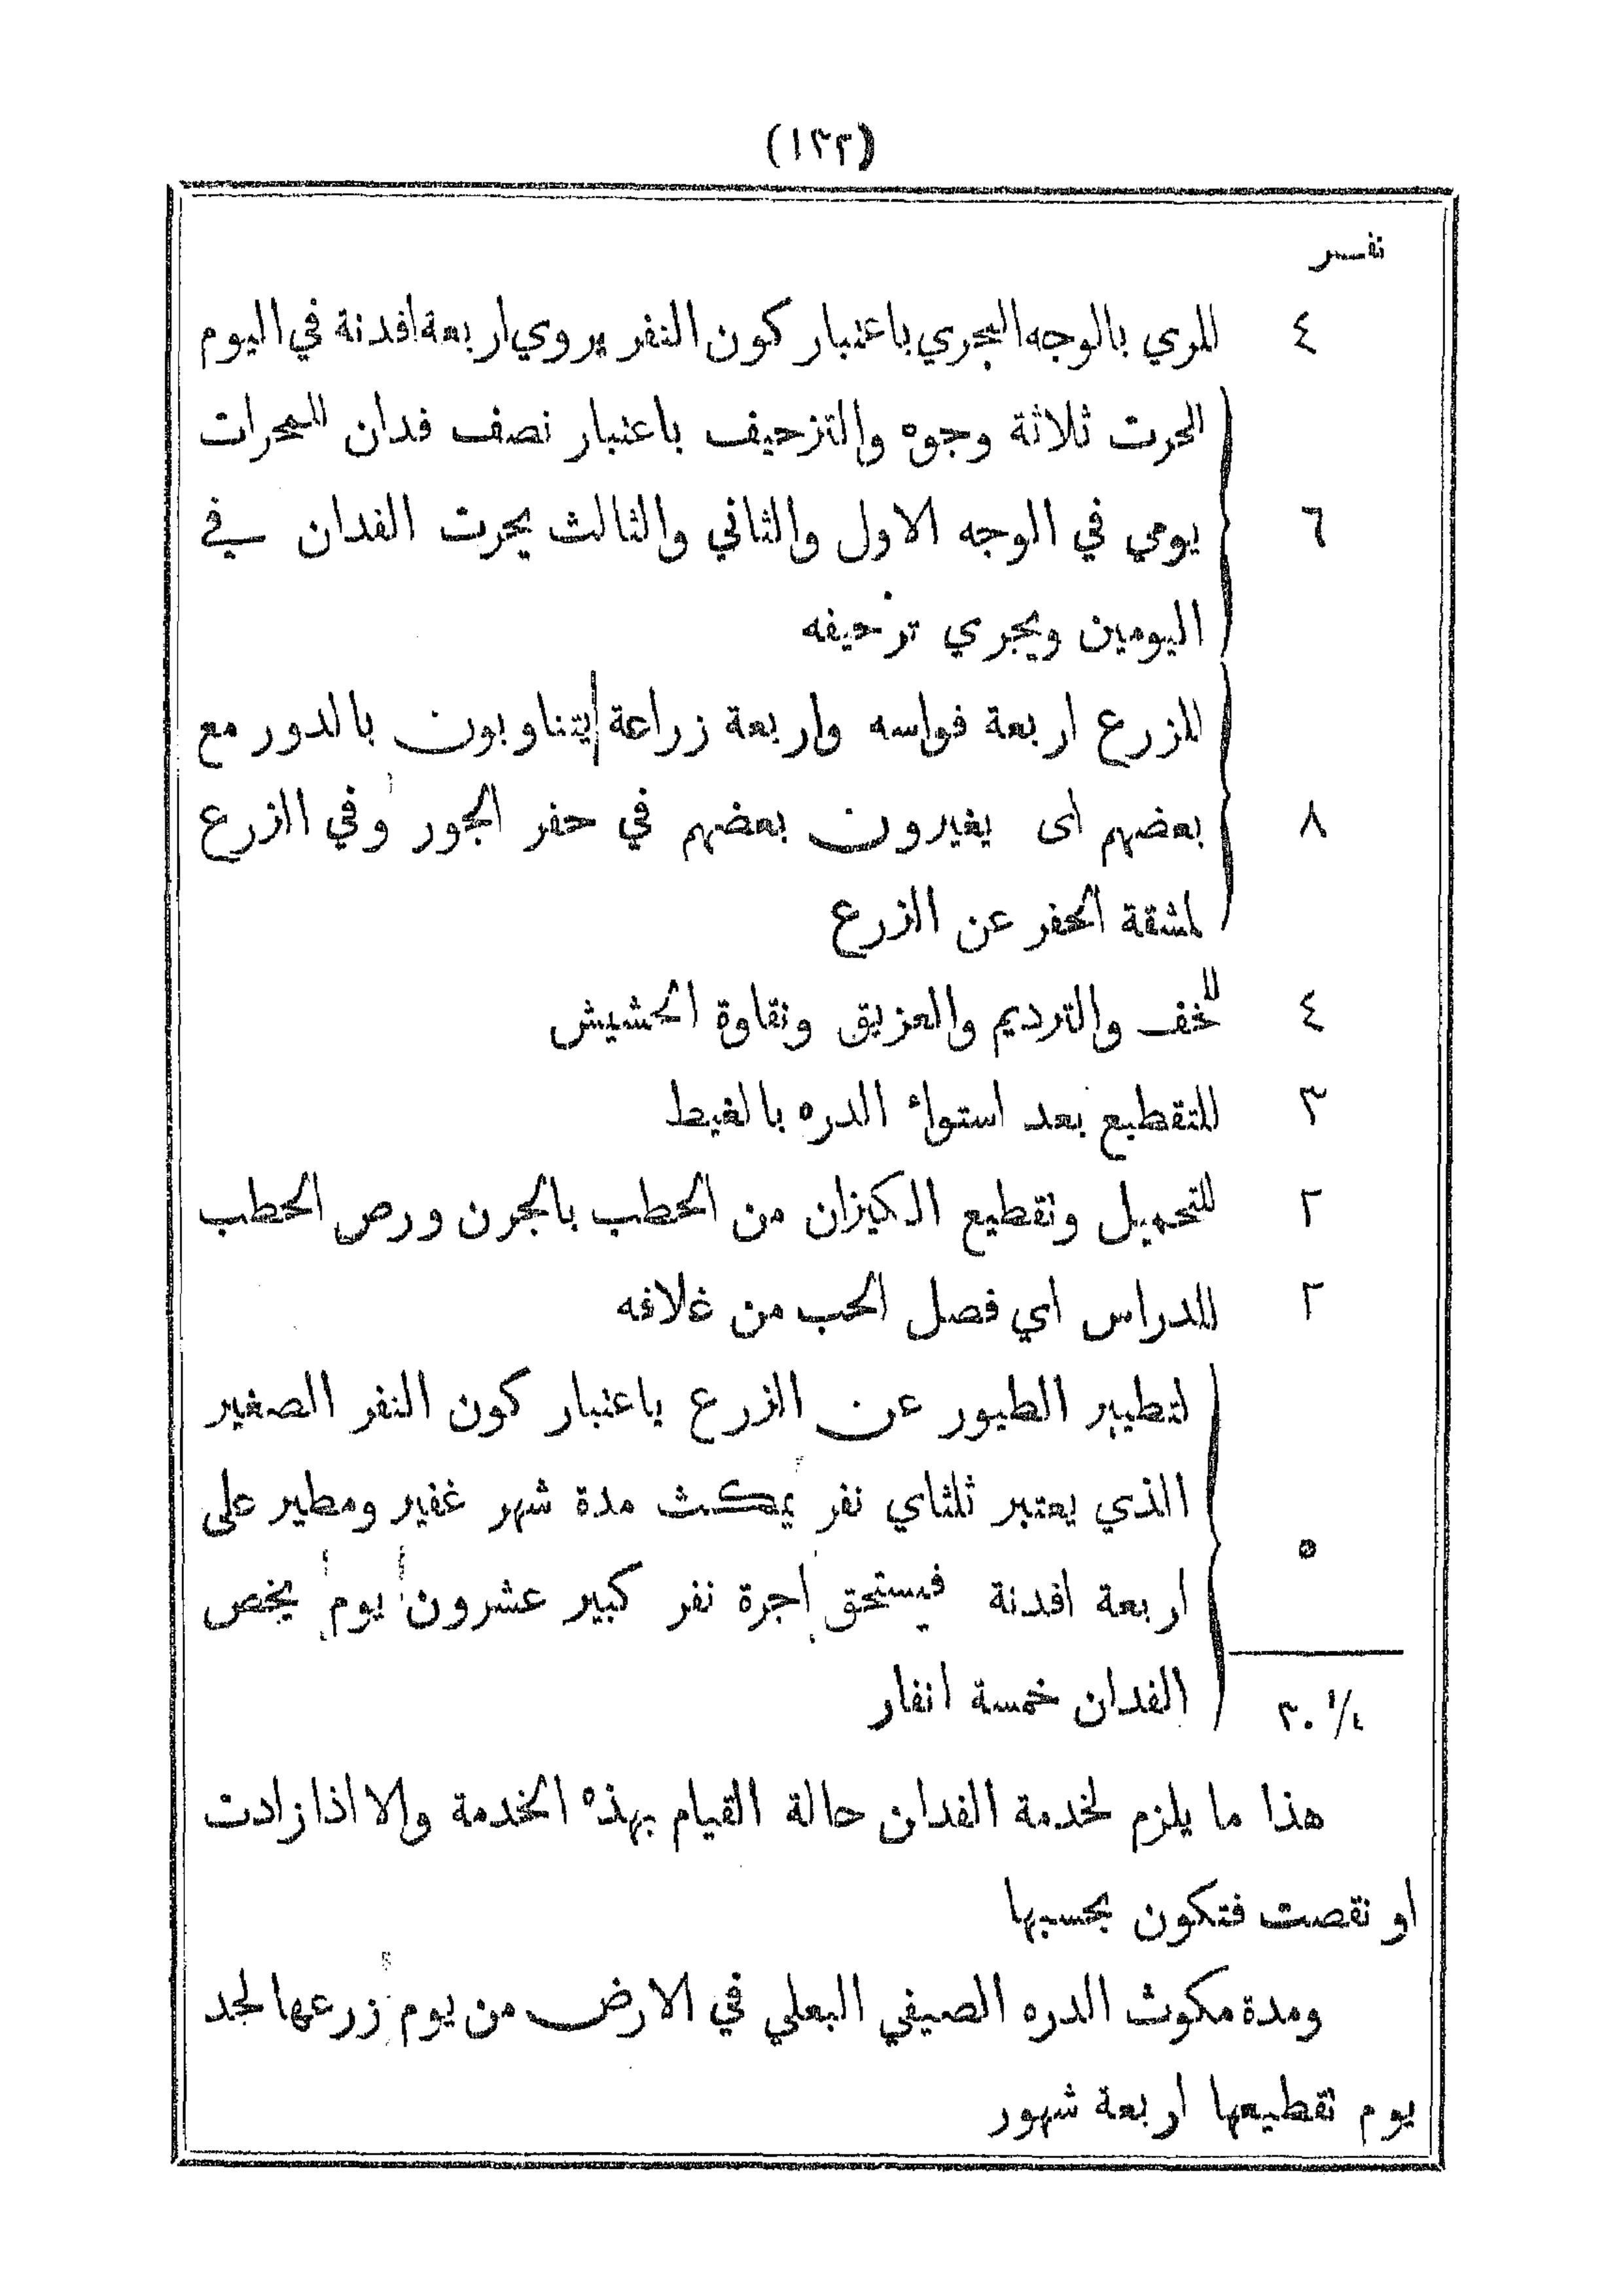 (١٣٢)
نفر
٤ للري بالوجه البحري باعتبار كون النفر يروي اربعة افدنة في اليوم
الحرت ثلاثة وجوه والتزحيف باعتبار نصف فدان للمحرات
٦ يومي في الوجه الاول والثاني والثالث يحرت الفدان في
اليومين ويجري تزحيفه
للزرع اربعة فواسه واربعة زراعة يتناوبون بالدور مع
٨ بعضهم اى يغيرون بعضهم في حفر الجور وفي الزرع
لمشقة الحفر عن الزرع
٤ للخف والترديم والعزيق ونقاوة الحشيش
٣ للتقطيع بعد استواء الدره بالغيط
٢ للتحميل وتقطيع الكيزان من الحطب بالجرن ورص الحطب
٢ للدراس اي فصل الحب من غلافه
لتطيير الطيور عن الزرع باعتبار كون النفر الصغير
الذي يعتبر ثلثاي نفر يمكث مدة شهر غفير ومطير على
٥ اربعة افدنة فيستحق اجرة نفر كبير عشرون يوم يخص
الفدان خمسة انفار
٣٠ ١/٤
هذا ما يلزم لخدمة الفدان حالة القيام بهذه الخدمة والا اذا زادت
او نقصت فتكون بحسبها
ومدة مكوث الدره الصيفي البعلي في الارض من يوم زرعها لحد
يوم تقطيعها اربعة شهور